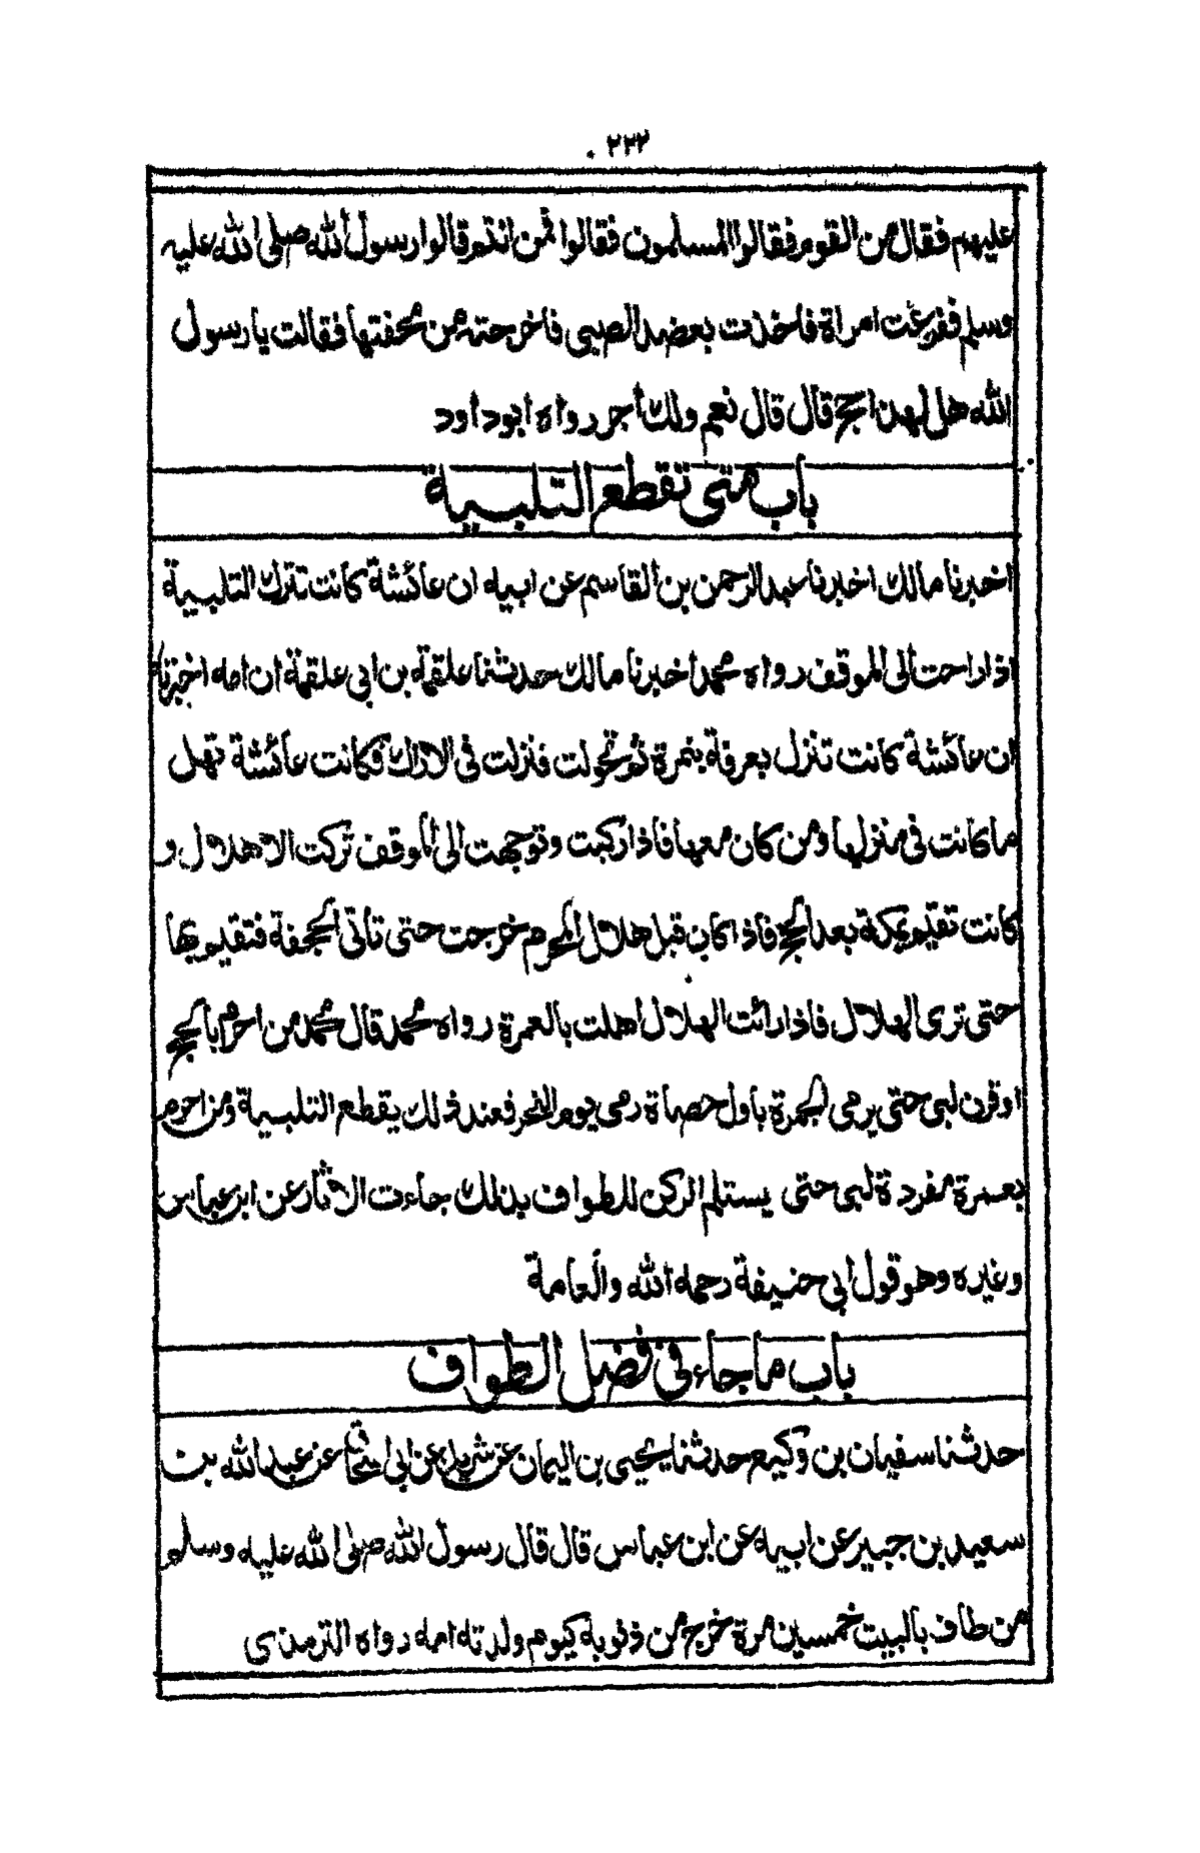 ۲۳۲
عليهم فقال من القوم فقالوا المسلمون فقالوا فمن انتم قالوا رسول الله صلى الله عليه
وسلم ففزعت امراة فاخذت بعضد الصبى فاخرجته من محفتها فقالت يا رسول
الله هل لهذا حج قال قال نعم ولك أجر رواه ابوداود
باب متى تقطع التلبية
اخبرنا مالك اخبرنا عبدالرحمن بن القاسم عن ابيه ان عائشة كانت تترك التلبية
اذا راحت الى الموقف رواه محمد أخبرنا مالك حدثنا علقمة بن ابى علقمة ان امه اخبرتنا
ان عائشة كانت تنزل بعرفة بنمرة ثم تحولت فنزلت فى الاراك فكانت عائشة تهل
ما كانت فى منزلها ومن كان معها فاذا ركبت وتوجهت الى الموقف تركت الاهلال و
كانت تقيم بمكة بعد الحج فاذا كان قبل هلال المحرم خرجت حتى تأتى الجحفة فتقيم بها
حتى ترى الهلال فاذا رأت الهلال اهلت بالعمرة رواه محمد قال محمد من احرم بالحج
او قرن لبى حتى يرمى الجمرة باول حصاة رمى يوم النحر فعند ذلك يقطع التلبية ومن احرم
بعمرة مفردة لبى حتى يستلم الركن للطواف بذلك جاءت الاثار عن ابن عباس
وغيره وهو قول ابى حنيفة رحمه الله والعامة
باب ما جاء فى فضل الطواف
حدثنا سفيان بن وكيع حدثنا يحيى بن اليمان عن شريك عن ابى اسحاق عن عبدالله بن
سعيد بن جبير عن ابيه عن ابن عباس قال قال رسول الله صلى الله عليه وسلم
من طاف بالبيت خمسين مرة خرج من ذنوبه كيوم ولدته امه رواه الترمذى